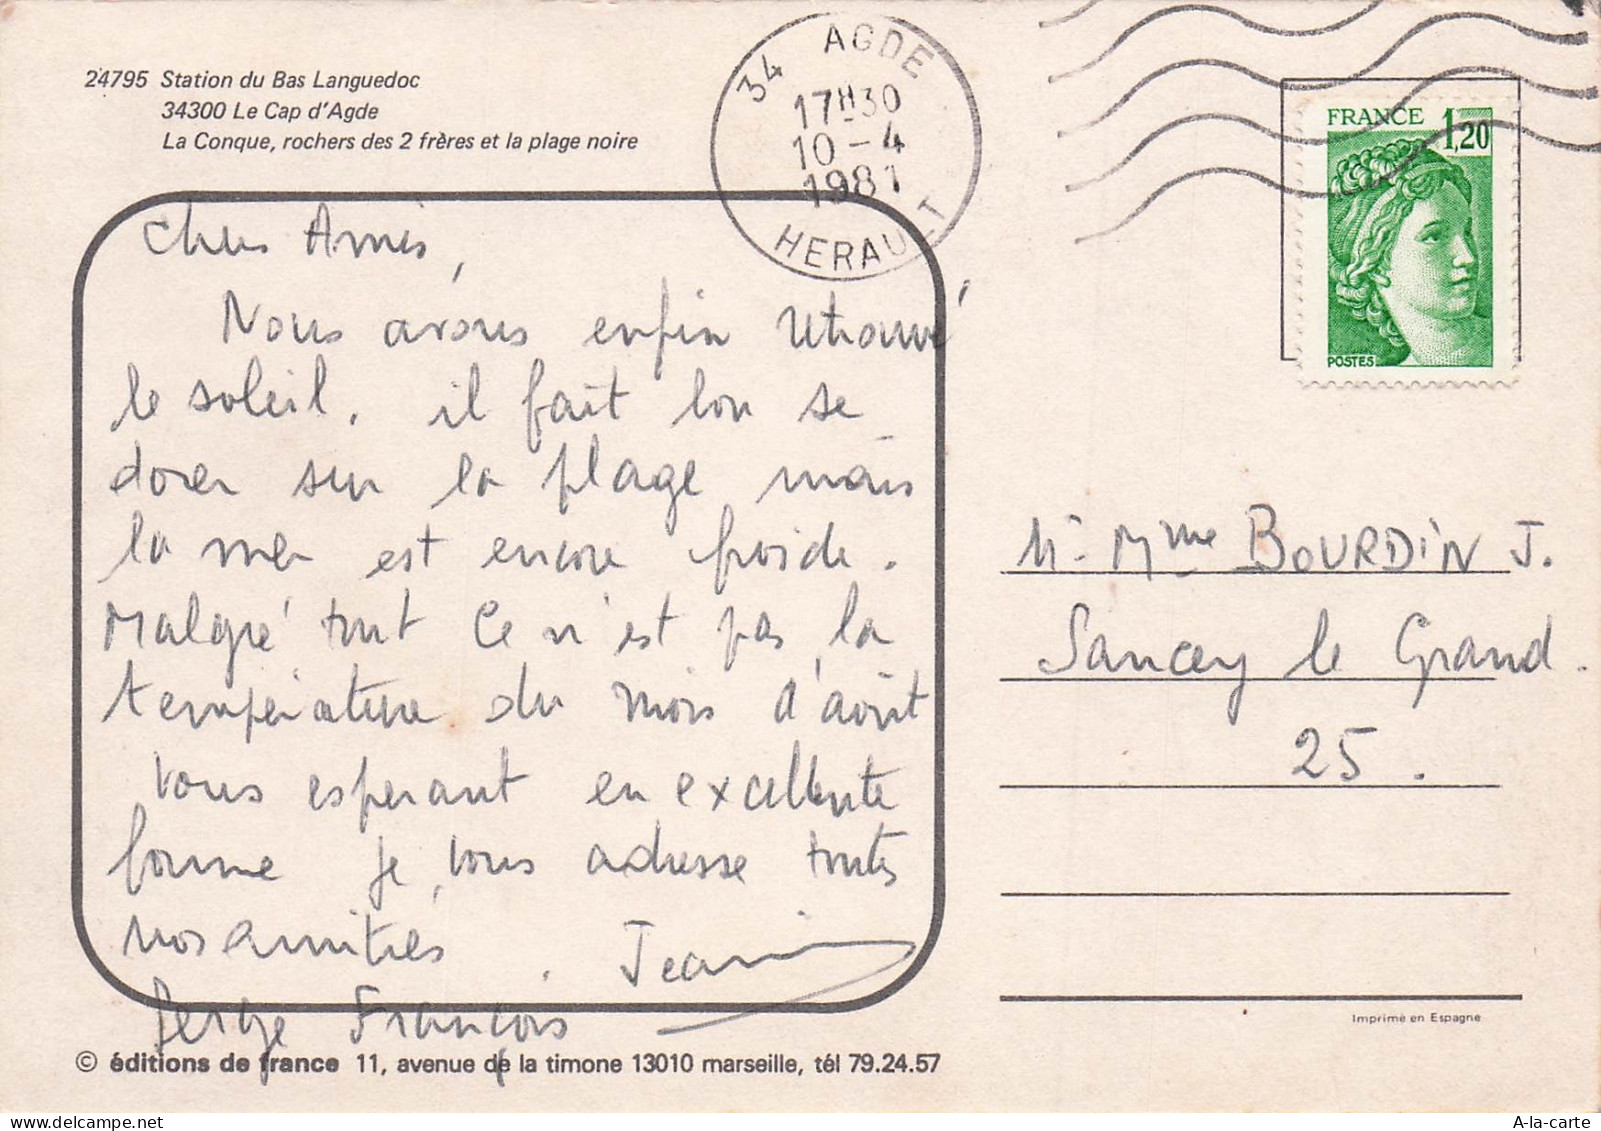 24795 Station du Bas Languedoc
34300 Le Cap d'Agde
La Conque, rochers des 2 frères et la plage noire
34 AGDE
17H30
10-4
1981
HERAULT
FRANCE 1,20
POSTES
Chers Amis,
Nous avons enfin retrouvé
le soleil. il fait bon se
dorer sur la plage mais
la mer est encore froide.
Malgré tout ce n'est pas la
température du mois d'août
Vous esperant en excellente
forme je vous adresse toutes
nos amitiés.
Serge François
Mr Mme BOURDIN J.
Sancey le Grand.
25.
Imprimé en Espagne
© éditions de france 11, avenue de la timone 13010 marseille, tél 79.24.57
A-la-carte